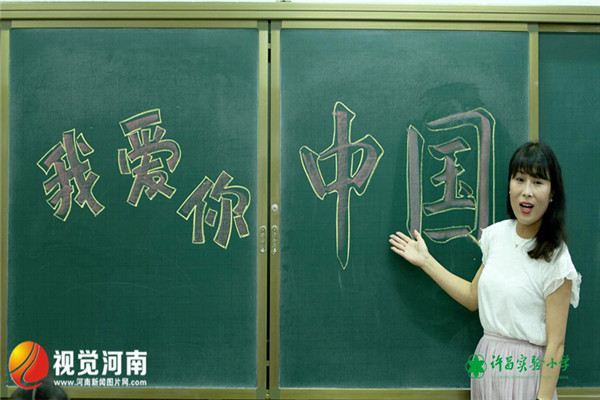 我爱你
中国
视觉河南
www.河南新闻图片网.com
许昌实验小学